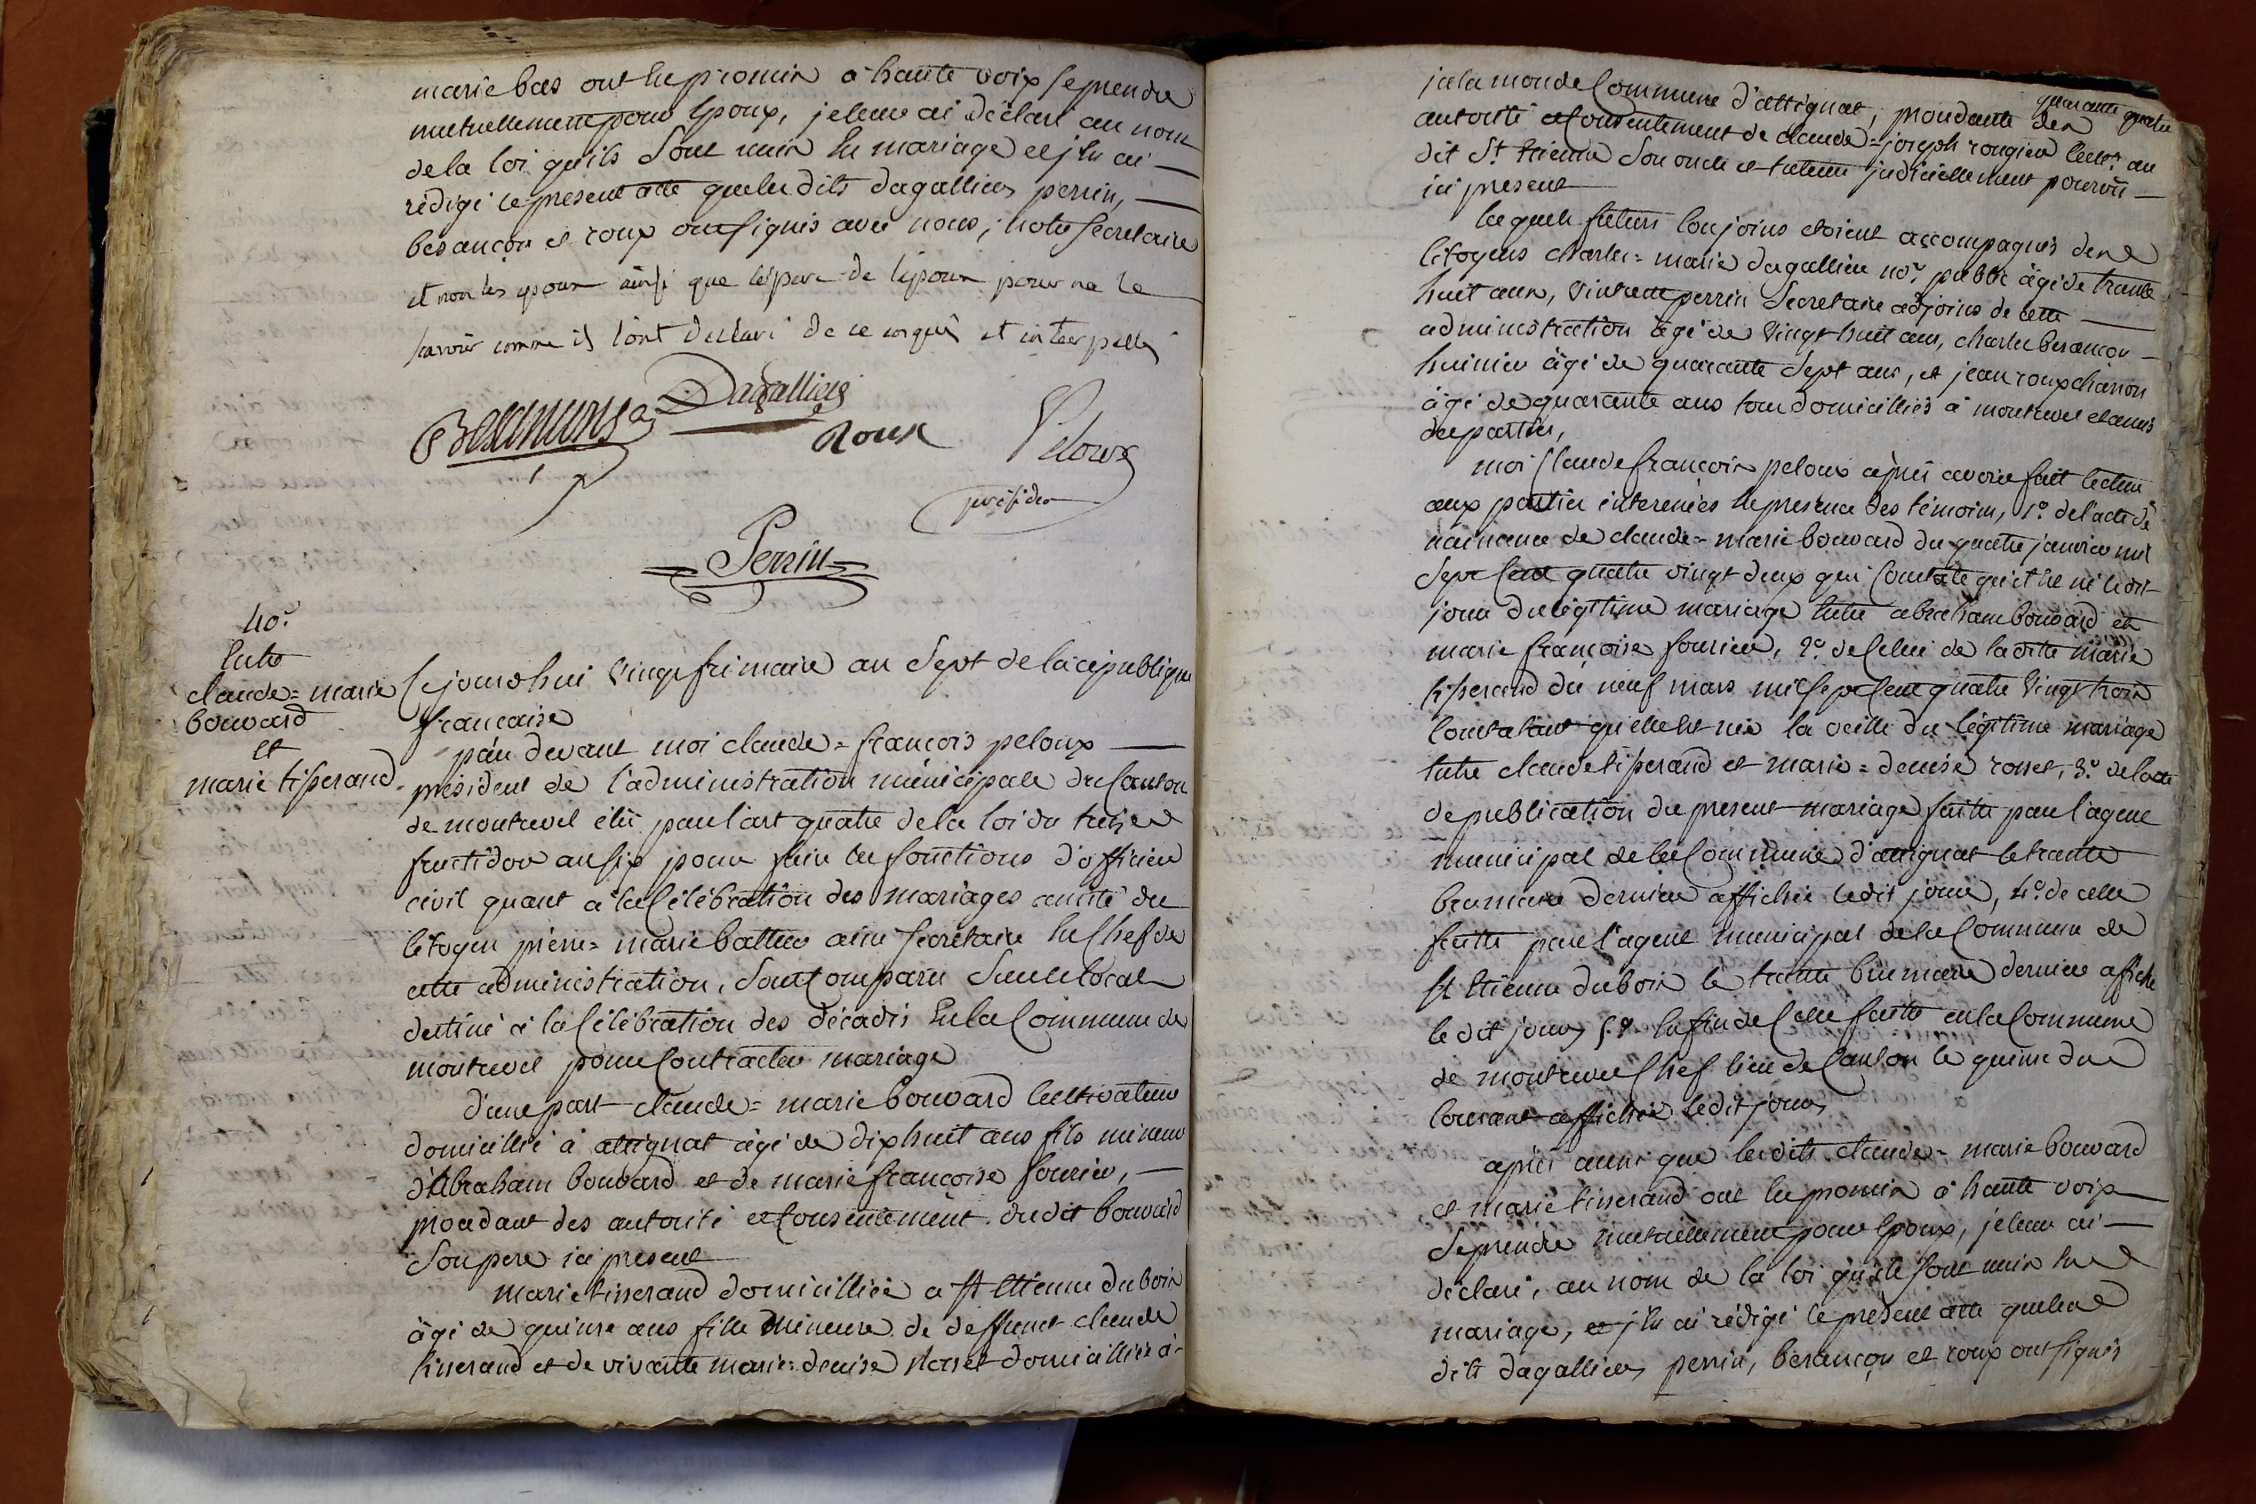 marie bas ont en promis a haute voix se prendre
mutuellement pour Epoux, je leur ai déclaré au nom
de la loi qu'ils sont unis en mariage et j'en ai —
rédigé le present acte que les dits dagallier, perrin, —
besançon et roux ont signés avec nous, notre secretaire
et non les epoux ainsi que le pere de lepoux pour ne le
savoir comme ils l'ont declaré de ce requis et interpellés
Besancon Dagallier
Roux Peloux
président
Perrin
40e
Entre
claude = marie
bouvard
et
marie tisserand
Cejourdhui vingt frimaire an sept de la république
francaise
par devant moi claude = francois peloux —
président de l'administration municipale du Canton
de montrevel élu par l'art quatre de la loi du treize
fructidor an six pour faire les fonctions d'officier
civil quant a la Célébration des mariages assisté du
Citoyen pierre = marie battier ainé secretaire en Chef de
cette administration, sont Comparu sur le local
destiné a la Célébration des décadis en la Commune de
montrevel pour Contracter mariage
d'une part claude = marie bouvard Cultivateur
domicillié a attignat âgé de dix huit ans fils mineur
d'Abraham bouvard et de marie françoise fourier, —
procedant des autorité et Consentement dudit bouvard
son pere ici present
marie tisserand domicilliée a St Etienne du bois
âgé de quinze ans fille mineure de deffunct claude
tisserand et de vivante marie = denise Rosset domicilliée à
quarante quatre
jalamonde Commune d'attignat, procedante des
autorité et Consentement de claude = joseph rougier Cultr. au
dit St. Etienne son oncle et tuteur judiciellement pourvû —
ici present
lesquels futurs Conjoins etoient accompagnés des
Citoyens charles = marie dagallier nore. public âgé de trante
huit ans, vincent perrin Secretaire adjoins de cette —
administration âgé de vingt huit ans, charles besançon —
huissier âgé de quarante sept ans, et jean roux charron
âgé de quarante ans tous domicilliés a montrevel et amis
des parties,
moi Claude françois peloux après avoir fait lecture
aux parties interessées en presence des témoins, 1o. de l'acte de
naissance de claude = marie bouvard du quatre janvier mil
Sept Cent quatre vingt deux qui Constate qu'il est né ledit
jour du légitime mariage entre abraham bouvard et
marie françoise fourier, 2o. de Celui de la ditte marie
tisserand du neuf mars mil sept Cent quatre vingt trois
Constatant qu'elle est née la veille du légitime mariage
entre claude tisserand et marie = denise rosset, 3o. de l'acte
de publication du present mariage faitte par l'agent
municipal de la Commune d'attignat le trante
brumaire dernier affichée ledit jour, 4o. de celle
faitte par l'agent municipal de la Commune de
St Etienne du bois le trante brumaire dernier affichée
le dit jour, 5o. enfin de Celle faitte en la Commune
de montrevel Chef lieu de Canton le quinze du
Courant affichée ledit jour,
après aussi que les dits claude = marie bouvard
et marie tisserand ont en promis a haute voix
se prendre mutuellement pour Epoux, je leur ai —
déclaré, au nom de la loi qu'ils sont unis en
mariage, et j'en ai rédigé le present acte que les
dits dagallier, perrin, besançon et roux ont signés